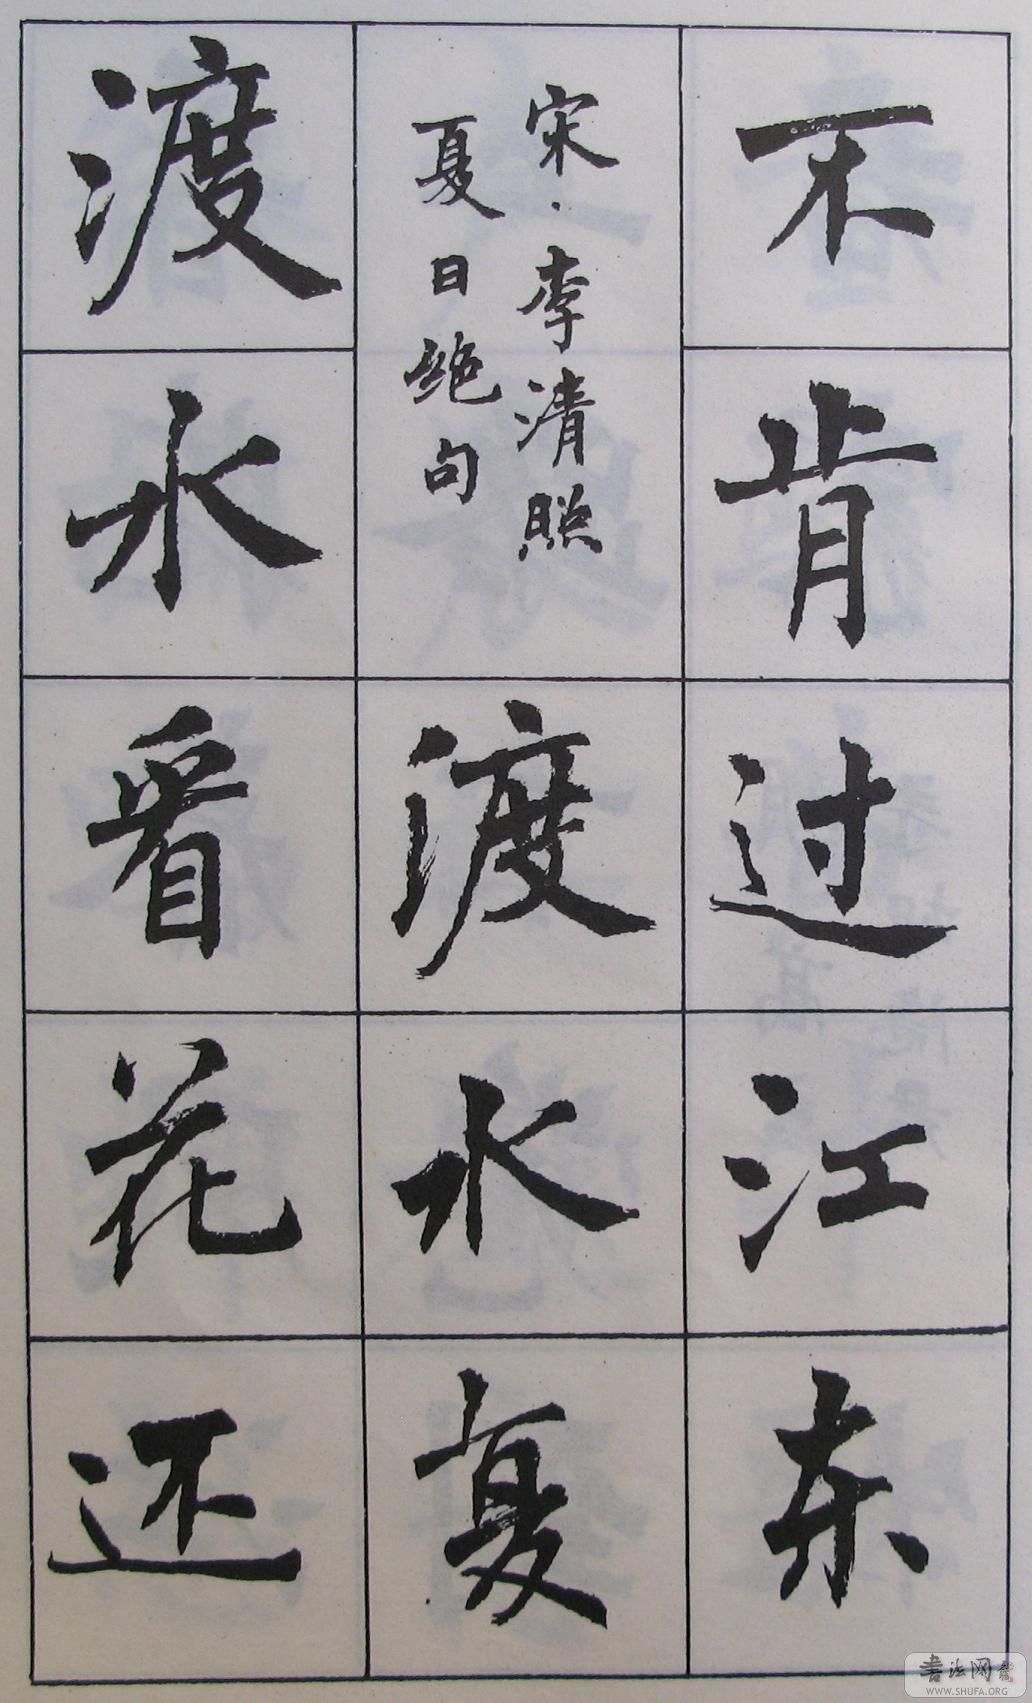 不肯过江东
宋·李清照
夏日绝句
渡水复
渡水看花还
书法网
WWW.SHUFA.ORG